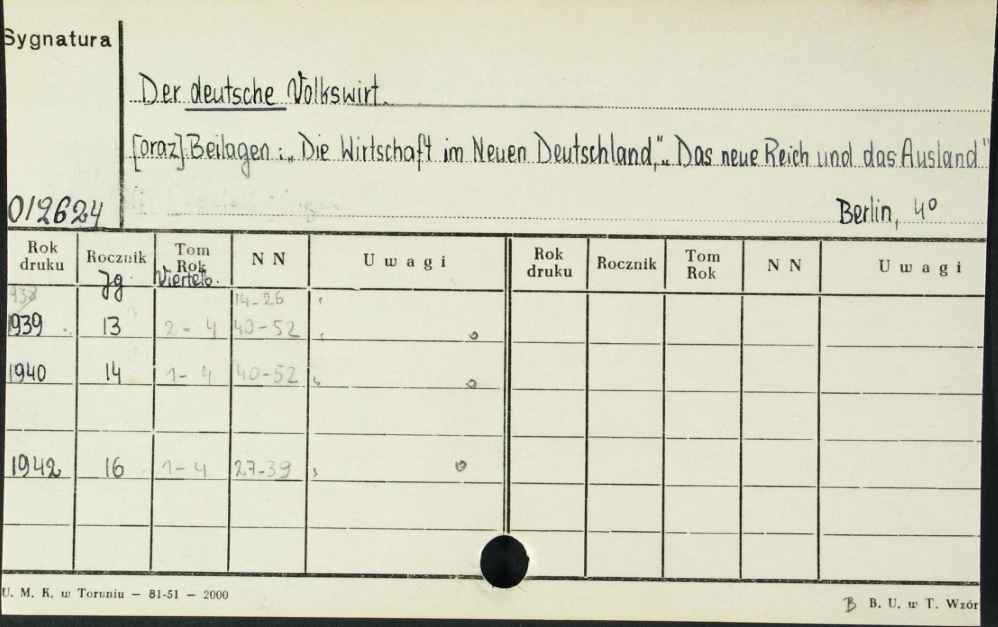 Sygnatura
Der deutsche Volkswirt.
[oraz] Beilagen: „Die Wirtschaft im Neuen Deutschland," „Das neue Reich und das Ausland"
012624
Berlin, 4°
Rok druku Rocznik Tom Rok N N Uwagi Rok druku Rocznik Tom Rok N N Uwagi
Jg.
14-26
1939 13 2-4 40-52
1940 14 1-4 40-52
1942 16 1-4 27-39
U. M. K. w Toruniu — 81-51 — 2000
B B. U. w T. Wzór